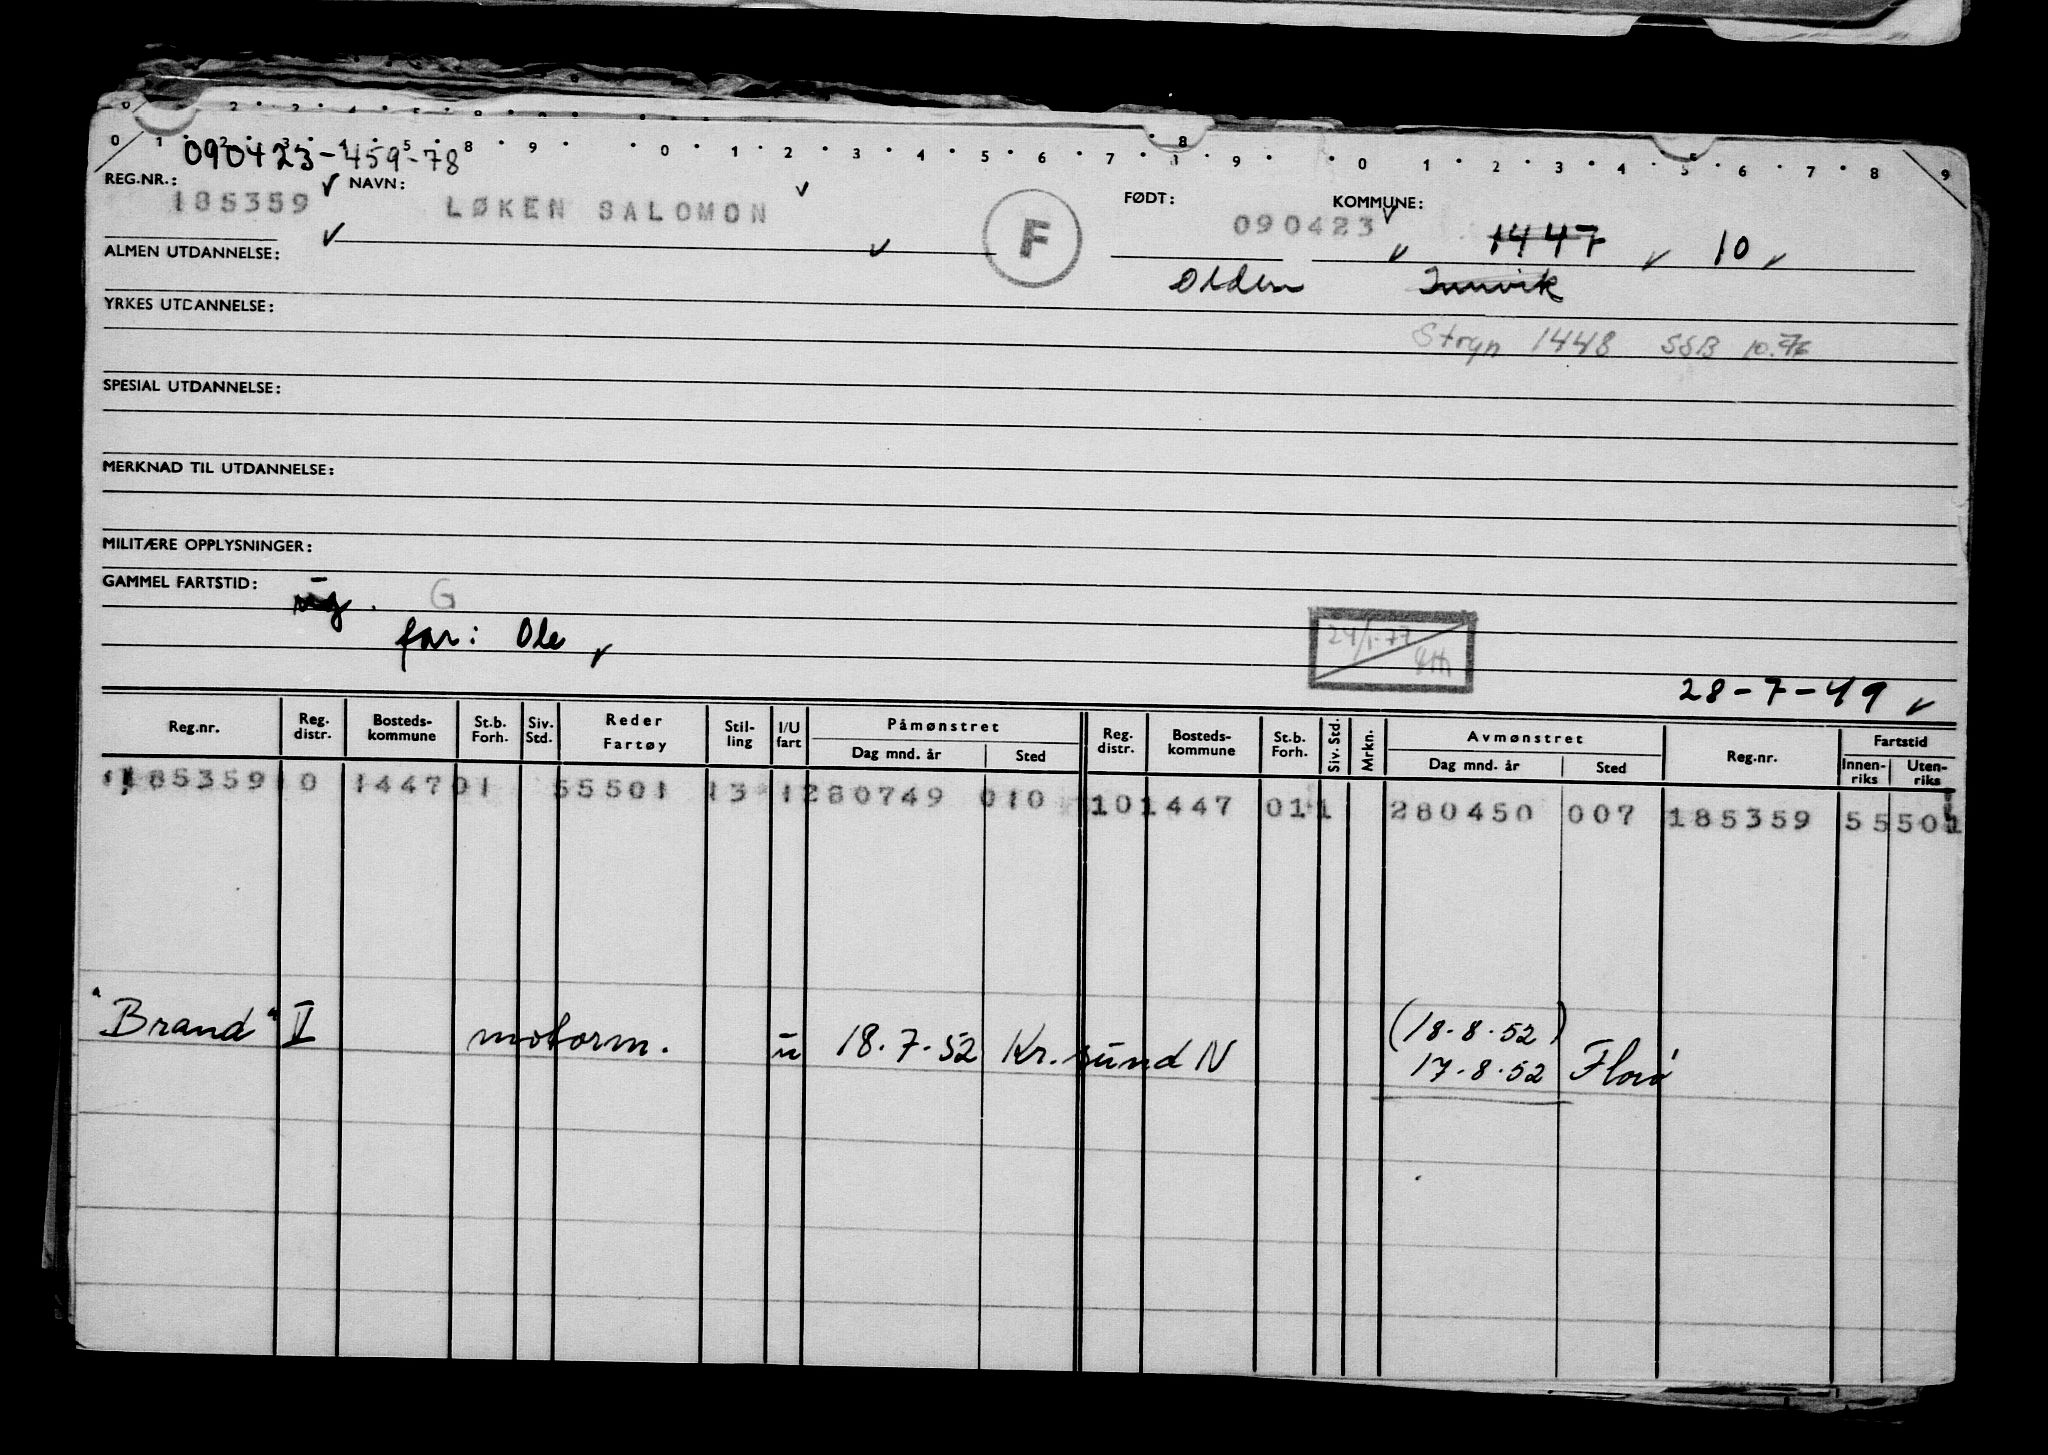 090423-459-78
REG.NR.: NAVN: FØDT: KOMMUNE:
185359 LØKEN SALOMON F 090423 1447 10
ALMEN UTDANNELSE: Olden Innvik
YRKES UTDANNELSE:
Stryn 1448 SSB 10.76
SPESIAL UTDANNELSE:
MERKNAD TIL UTDANNELSE:
MILITÆRE OPPLYSNINGER:
GAMMEL FARTSTID: G
far: Ole
24/1-77
28-7-49
Reg.nr. Reg. distr. Bosteds-kommune St.b. Forh. Siv. Std. Reder Fartøy Stil-ling I/U fart Påmønstret Dag mnd. år Sted Reg. distr. Bosteds-kommune St.b. Forh. Siv. Std. Mrkn. Avmønstret Dag mnd. år Sted Reg.nr. Fartstid Innen-riks Uten-riks
185359 10 1447 01 55501 13 1 280749 010 10 1447 01 1 280450 007 185359 55501
"Brand" II motorm. u 18.7.52 Kr.sund N (18.8.52)
17.8.52 Florø